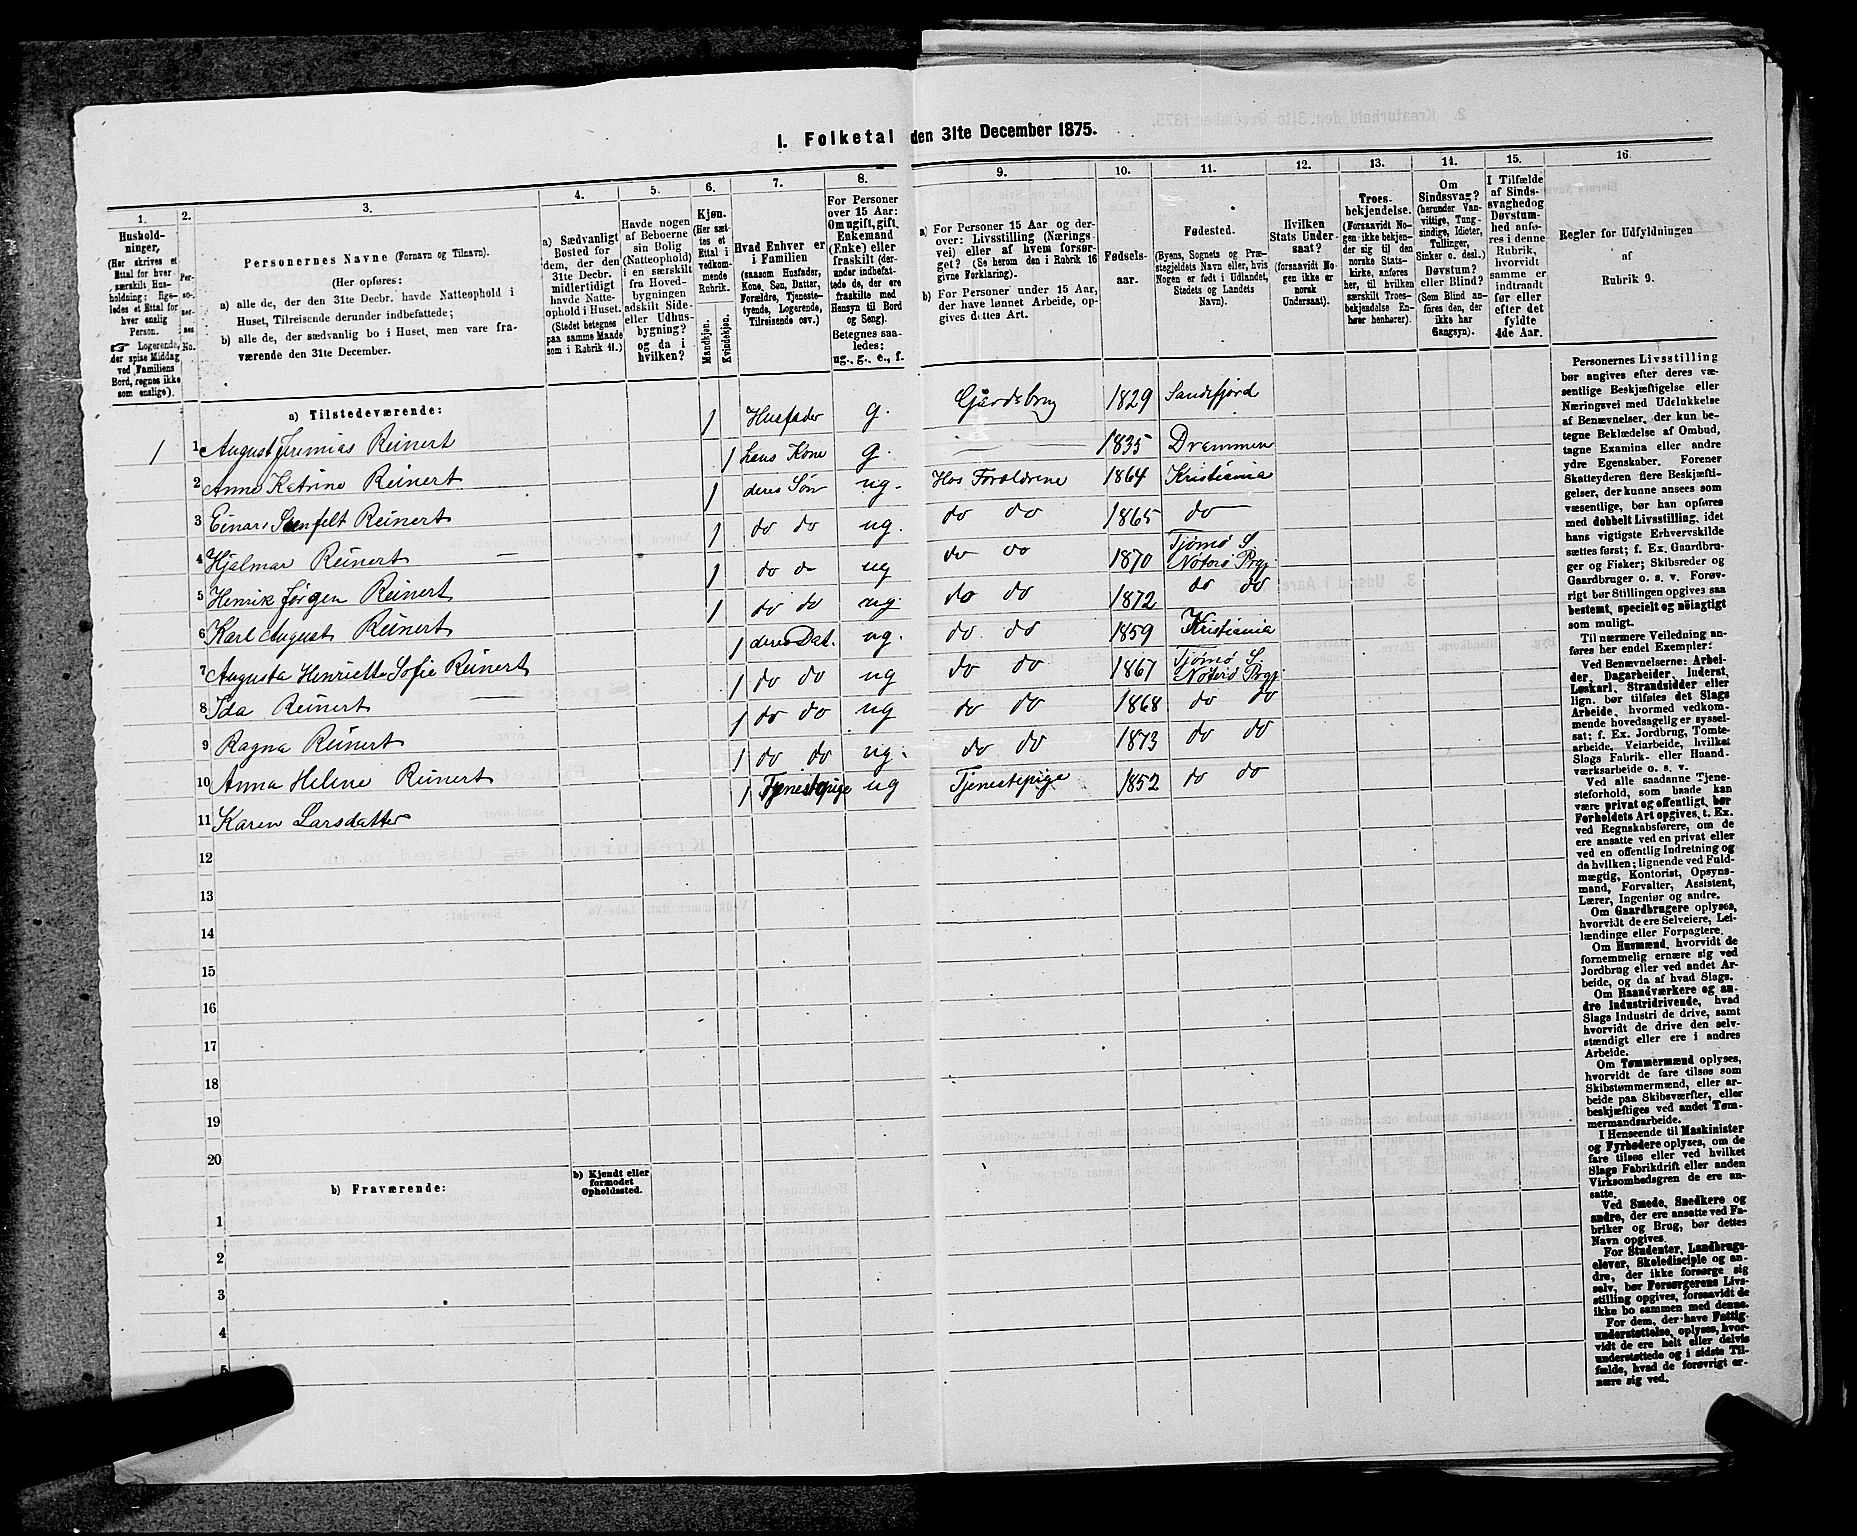 1. Folketal den 31te December 1875.
1. 2. 3. 4. 5. 6. 7. 8. 9. 10. 11. 12. 13. 14. 15. 16.
Hushold-
ninger,
(Her skrives et
Ettal for hver
særskilt Hus-
holdning; lige-
ledes et Ettal for
hver enslig
Person.
☞ Logerende,
der spise Middag
ved Familiens
Bord, regnes ikke
som enslige).
Per-
so-
ner-
nes
No.
Personernes Navne (Fornavn og Tilnavn).
(Her opføres:
a) alle de, der den 31te Decbr. havde Natteophold i
Huset, Tilreisende derunder indbefattede;
b) alle de, der sædvanlig bo i Huset, men vare fra-
værende den 31te December.
a) Sædvanligt
Bosted for
dem, der den
31te Decbr.
midlertidigt
havde Natte-
ophold i Huset.
(Stedet betegnes
paa samme Maade
som i Rubrik 11.)
Havde nogen
af Beboerne
sin Bolig
(Natteophold)
i en særskilt
fra Hoved-
bygningen
adskilt Side-
eller Udhus-
bygning?
og da i
hvilken?
Kjøn.
(Her sæt-
tes et
Ettal i
vedkom-
mende
Rubrik.
Mandkjøn.
Kvindekjøn.
Hvad Enhver er
i Familien
(saasom Husfader,
Kone, Søn, Datter,
Forældre, Tjeneste-
tyende, Logerende,
Tilreisende osv.)
For Personer
over 15 Aar:
Om ugift, gift,
Enkemand
(Enke) eller
fraskilt (der-
under indbefat-
tede de, der ere
fraskilte med
Hensyn til Bord
og Seng).
Betegnes saa-
ledes:
ug., g., e., f.
a) For Personer 15 Aar og der-
over: Livsstilling (Nærings-
vei) eller af hvem forsør-
get? (Se herom den i Rubrik 16
givne Forklaring).
b) For Personer under 15 Aar,
der have lønnet Arbeide, op-
gives dettes Art.
Fødsels-
aar.
Fødested.
(Byens, Sognets og Præ-
stegjeldets Navn eller, hvis
Nogen er født i Udlandet,
Stedets og Landets
Navn).
Hvilken
Stats Under-
saat?
(forsaavidt No-
gen ikke er
norsk
Undersaat).
Troes-
bekjendelse.
(Forsaavidt No-
gen ikke bekjen-
der sig til den
norske Stats-
kirke, anføres
her, til hvilken
særskilt Troes-
bekjendelse En-
hver henhører).
Om
Sindssvag?
(herunder Van-
vittige, Tung-
sindige, Idioter,
Tullinger,
Sinker o. desl.)
Døvstum?
eller Blind?
(Som Blind an-
føres den, der
ikke har
Gangsyn).
I Tilfælde
af Sinds-
svaghed og
Døvstum-
hed anfø-
res i denne
Rubrik,
hvorvidt
samme er
indtraadt
før eller
efter det
fyldte
4de Aar.
Regler for Udfyldningen
af
Rubrik 9.
a) Tilstedeværende:
1 1 August Jeremias Reinert 1 Husfader g. Gårdsbrug 1829 Sandefjord
2 Anne Katrine Reinert 1 hans Kone g. 1835 Drammen
3 Einar Reinert 1 deres Søn ug. Hos Forældrene 1864 Kristiania
4 Hjalmar Reinert 1 do do ug. do do 1865 do
5 Henrik Jørgen Reinert 1 do do ug do do 1870 Tjømø S. Nøterø Prgj
6 Karl August Reinert 1 do do ug. do do 1872 do do
7 Augusta Henriette Sofie Reinert 1 deres Dat. ug. do do 1859 Kristiania
8 Ida Reinert 1 do do ug do do 1867 Tjømø S. Nøterø Prgj
9 Ragna Reinert 1 do do ug do do 1868 do do
10 Anna Helene Reinert 1 do do ug. do do 1873 do do
11 Karen Larsdatter 1 Tjenestepige ug Tjenestepige 1852 do do
12
13
14
15
16
17
18
19
20
b) Fraværende:
b) Kjendt eller
formodet
Opholdssted.
1
2
3
4
5
Personernes Livsstilling
bør angives efter deres væ-
sentlige Beskjæftigelse eller
Næringsvei med Udelukkelse
af Benævnelser, der kun be-
tegne Beklædelse af Ombud,
tagne Examina eller andre
ydre Egenskaber. Forener
Skatteyderen flere Beskjæfti-
gelser, der kunne ansees som
væsentlige, bør han opføres
med dobbelt Livsstilling, idet
hans vigtigste Erhvervskilde
sættes først; f. Ex. Gaardbru-
ger og Fisker; Skibsreder og
Gaardbruger o. s. v. Forøv-
rigt bør Stillingen opgives saa
bestemt, specielt og nøiagtigt
som muligt.
Til nærmere Veiledning an-
føres her endel Exempler:
Ved Benævnelserne: Arbei-
der, Dagarbeider, Inderst,
Løskarl, Strandsidder eller
lign. bør tilføies det Slags
Arbeide, hvormed vedkom-
mende hovedsagelig er syssel-
sat; f. Ex. Jordbrug, Tomte-
arbeide, Veiarbeide, hvilket
Slags Fabrik- eller Haand-
værksarbeide o. s. v.
Ved alle saadanne Tjene-
steforhold, som baade kan
være privat og offentligt, bør
Forholdets Art opgives, t. Ex.
ved Regnskabsførere, om de
ere ansatte ved en privat eller
ved en offentlig Indretning og
da hvilken; lignende ved Fuld-
mægtig, Kontorist, Opsyns-
mand, Forvalter, Assistent,
Lærer, Ingeniør og andre.
Om Gaardbrugere oplyses,
hvorvidt de ere Selveiere, Lei-
lændinge eller Forpagtere.
Om Husmænd, hvorvidt de
fornemmelig ernære sig ved
Jordbrug eller ved andet Ar-
beide, og da af hvad Slags.
Om Haandværkere og an-
dre Industridrivende, hvad
Slags Industri de drive, samt
hvorvidt de drive den selv-
stændigt eller ere i andres
Arbeide.
Om Tømmermænd oplyses,
hvorvidt de fare tilsøs som
Skibstømmermænd, eller ar-
beide paa Skibsværfter, eller
beskjæftiges ved andet Tøm-
mermandsarbeide.
I Henseende til Maskinister
og Fyrbødere oplyses, om de
fare tilsøs eller ved hvilket
Slags Fabrikdrift eller anden
Virksomhedsgren de ere an-
satte.
Ved Smede, Snedkere og
andre, der ere ansatte ved Fa-
briker og Brug, bør dettes
Navn opgives.
For Studenter, Landbrugs-
elever, Skoledisciple og an-
dre, der ikke forsørge sig
selv, bør Forsørgerens Livs-
stilling opgives, forsaavidt de
ikke bo sammen med denne.
For dem, der have Fattig-
understøttelse, oplyses, hvor-
vidt de ere helt eller delvis
understøttede og i sidste Til-
fælde, hvad de forøvrigt er-
nære sig ved.